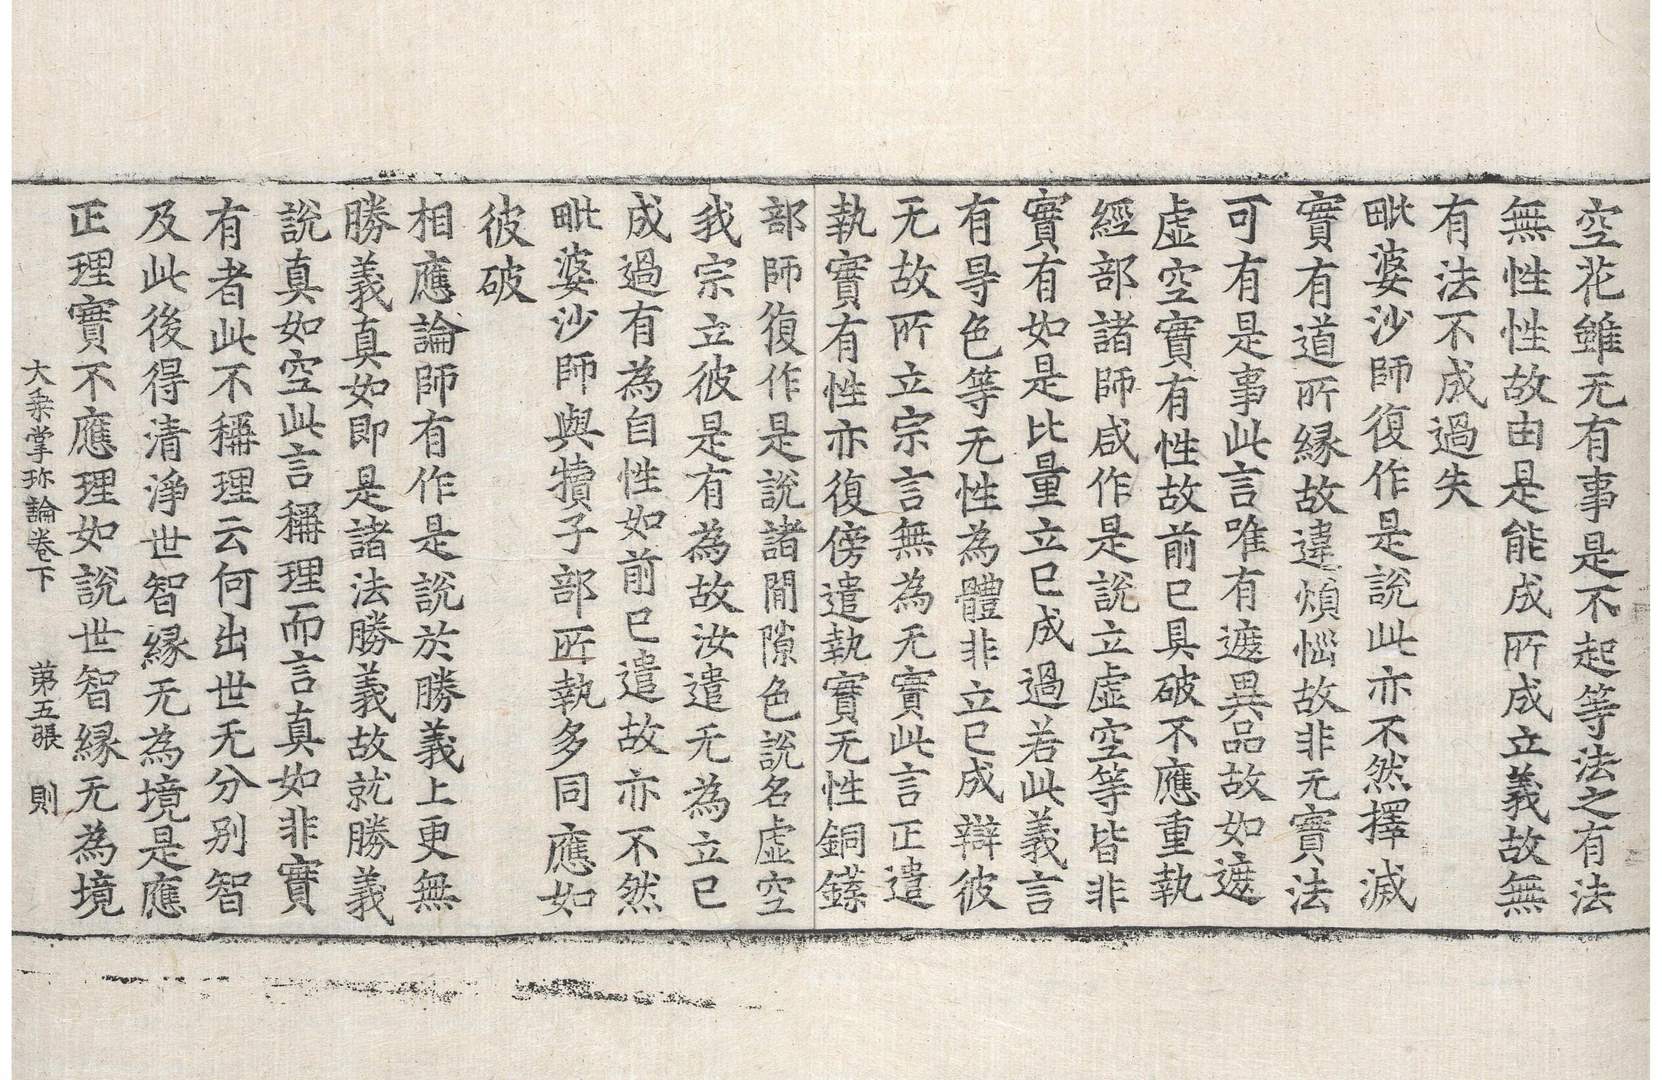 空花雖无有事是不起等法之有法
無性性故由是能成所成立義故無
有法不成過失
毗婆沙師復作是說此亦不然擇滅
實有道所縁故違煩惱故非无實法
可有是事此言唯有遮異品故如遮
虛空實有性故前已具破不應重執
經部諸師咸作是說立虛空等皆非
實有如是比量立已成過若此義言
有㝵色等无性為體非立已成辯彼
无故所立宗言無為无實此言正遣
執實有性亦復傍遣執實无性銅鍱
部師復作是說諸閒隙色說名虛空
我宗立彼是有為故汝遣无為立已
成過有為自性如前已遣故亦不然
毗婆沙師與犢子部所執多同應如
彼破
相應論師有作是說於勝義上更無
勝義真如即是諸法勝義故就勝義
說真如空此言稱理而言真如非實
有者此不稱理云何出世无分別智
及此後得清淨世智縁无為境是應
正理實不應理如說世智縁无為境
大乘掌珎論卷下 第五張 則